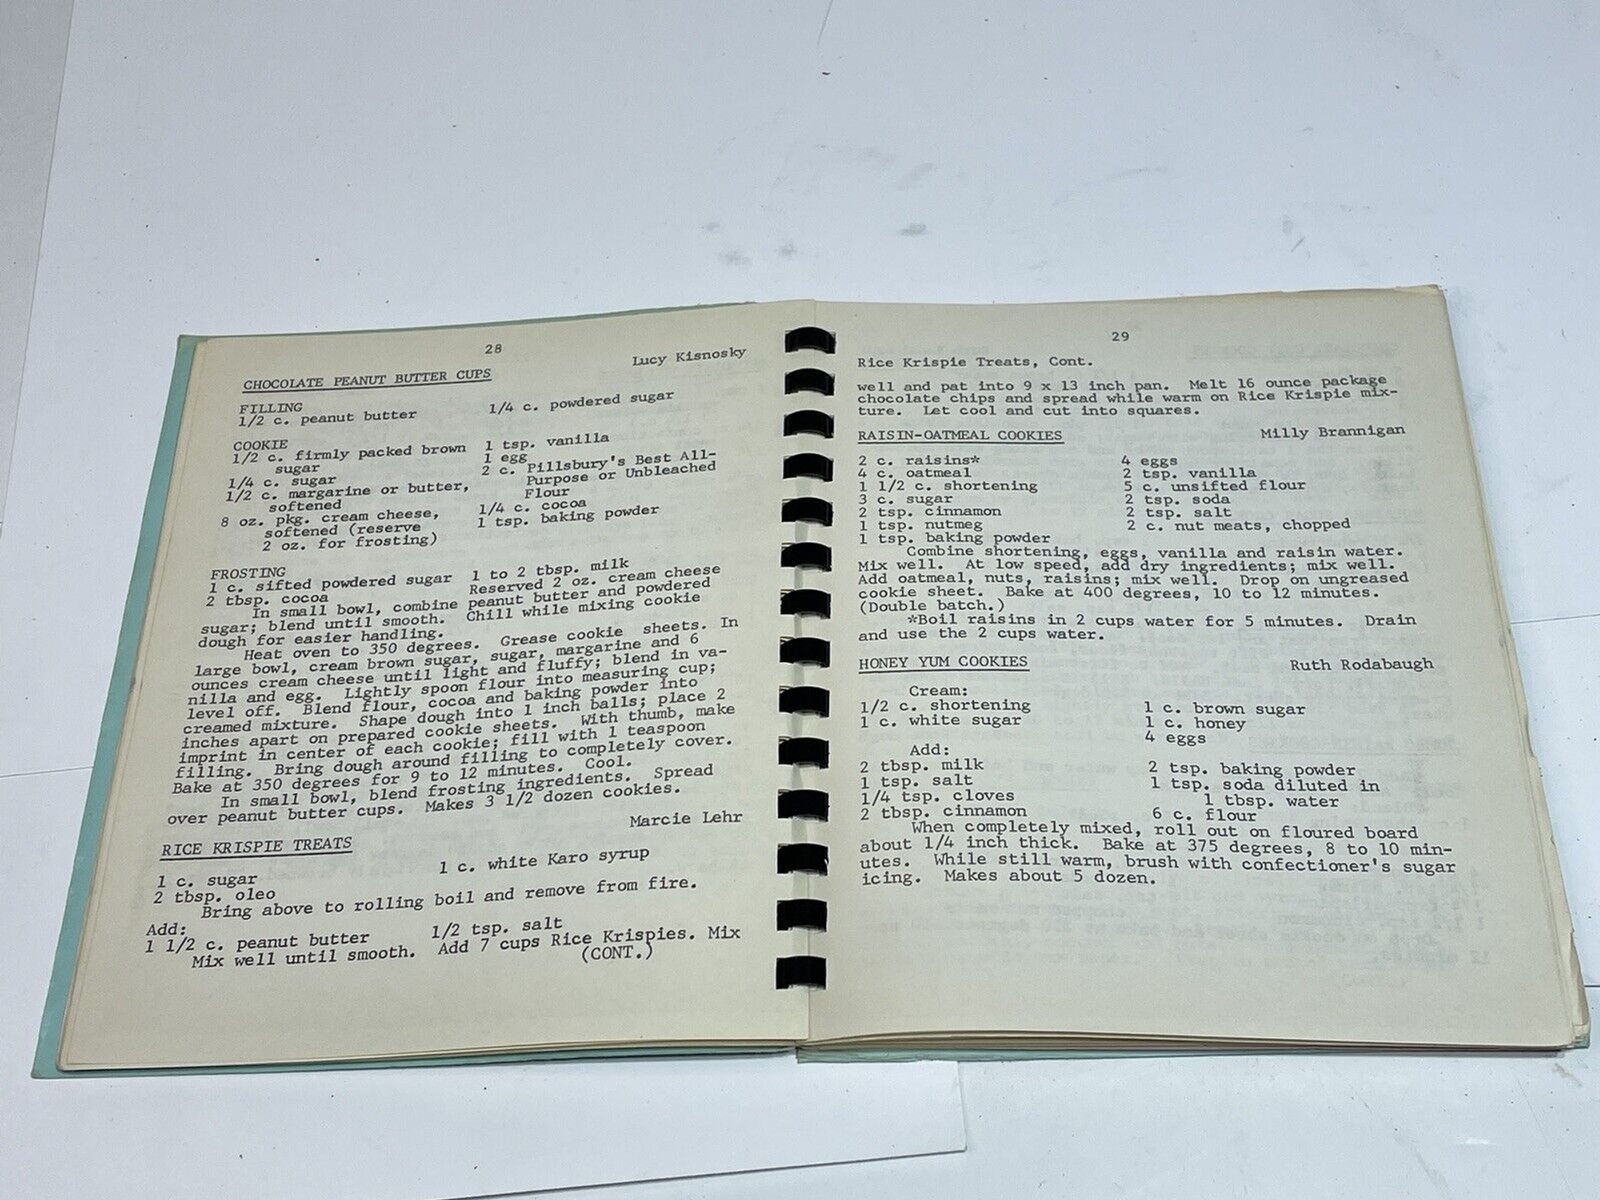 28
Lucy Kisnosky
CHOCOLATE PEANUT BUTTER CUPS
FILLING
1/2 c. peanut butter
1/4 c. powdered sugar
COOKIE
1/2 c. firmly packed brown
sugar
1/4 c. sugar
1/2 c. margarine or butter,
softened
8 oz. pkg. cream cheese,
softened (reserve
2 oz. for frosting)
1 tsp. vanilla
1 egg
2 c. Pillsbury's Best All-
Purpose or Unbleached
Flour
1/4 c. cocoa
1 tsp. baking powder
FROSTING
1 c. sifted powdered sugar
2 tbsp. cocoa
1 to 2 tbsp. milk
Reserved 2 oz. cream cheese
In small bowl, combine peanut butter and powdered
sugar; blend until smooth. Chill while mixing cookie
dough for easier handling.
Heat oven to 350 degrees. Grease cookie sheets. In
large bowl, cream brown sugar, sugar, margarine and 6
ounces cream cheese until light and fluffy; blend in va-
nilla and egg. Lightly spoon flour into measuring cup;
level off. Blend flour, cocoa and baking powder into
creamed mixture. Shape dough into 1 inch balls; place 2
inches apart on prepared cookie sheets. With thumb, make
imprint in center of each cookie; fill with 1 teaspoon
filling. Bring dough around filling to completely cover.
Bake at 350 degrees for 9 to 12 minutes. Cool.
In small bowl, blend frosting ingredients. Spread
over peanut butter cups. Makes 3 1/2 dozen cookies.
Marcie Lehr
RICE KRISPIE TREATS
1 c. sugar
2 tbsp. oleo
1 c. white Karo syrup
Bring above to rolling boil and remove from fire.
Add:
1 1/2 c. peanut butter
1/2 tsp. salt
Mix well until smooth. Add 7 cups Rice Krispies. Mix
(CONT.)
29
Rice Krispie Treats, Cont.
well and pat into 9 x 13 inch pan. Melt 16 ounce package
chocolate chips and spread while warm on Rice Krispie mix-
ture. Let cool and cut into squares.
RAISIN-OATMEAL COOKIES
Milly Brannigan
2 c. raisins*
4 c. oatmeal
1 1/2 c. shortening
3 c. sugar
2 tsp. cinnamon
1 tsp. nutmeg
1 tsp. baking powder
4 eggs
2 tsp. vanilla
5 c. unsifted flour
2 tsp. soda
2 tsp. salt
2 c. nut meats, chopped
Combine shortening, eggs, vanilla and raisin water.
Mix well. At low speed, add dry ingredients; mix well.
Add oatmeal, nuts, raisins; mix well. Drop on ungreased
cookie sheet. Bake at 400 degrees, 10 to 12 minutes.
(Double batch.)
*Boil raisins in 2 cups water for 5 minutes. Drain
and use the 2 cups water.
HONEY YUM COOKIES
Ruth Rodabaugh
Cream:
1/2 c. shortening
1 c. white sugar
1 c. brown sugar
1 c. honey
4 eggs
Add:
2 tbsp. milk
1 tsp. salt
1/4 tsp. cloves
2 tbsp. cinnamon
2 tsp. baking powder
1 tsp. soda diluted in
1 tbsp. water
6 c. flour
When completely mixed, roll out on floured board
about 1/4 inch thick. Bake at 375 degrees, 8 to 10 min-
utes. While still warm, brush with confectioner's sugar
icing. Makes about 5 dozen.